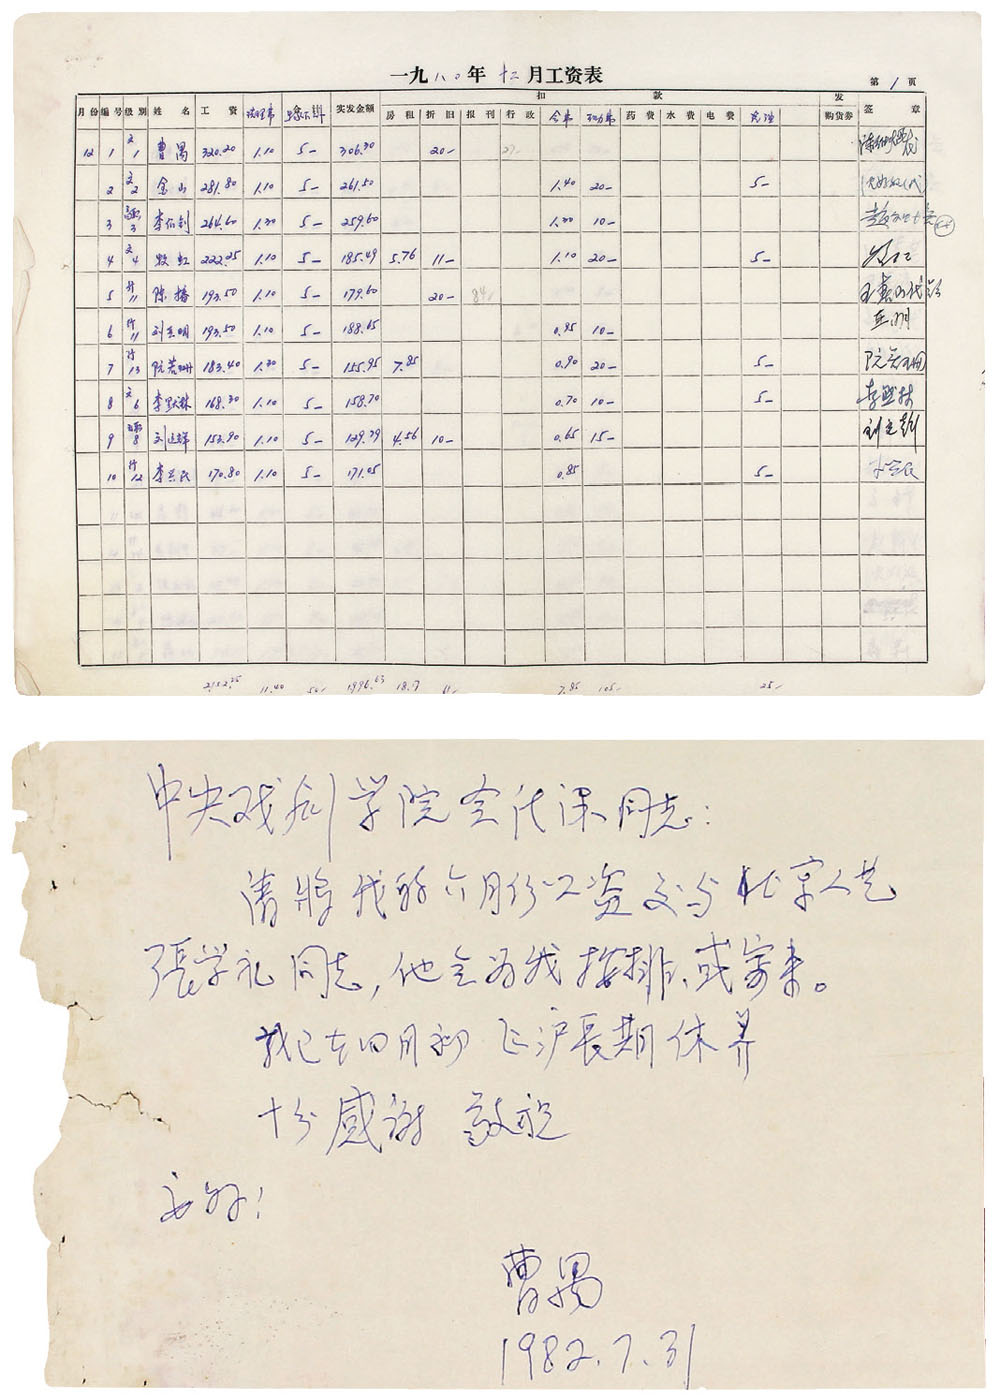 一九八〇年十二月工资表
第1页
扣款 发
月份 编号 级别 姓名 工资 实发金额 房租 折旧 报刊 行政 会费 互助费 药费 水费 电费 购货券 签章
12 1 文1 曹禺 320.20 1.10 5- 306.30 20-
2 文2 金山 281.80 1.10 5- 261.50 1.40 20- 5-
3 3 李伯钊 264.60 1.30 5- 259.60 1.30 10-
4 文4 牧虹 222.25 1.10 5- 185.49 5.76 11- 1.10 20- 5-
5 行11 陈播 193.50 1.10 5- 179.60 20-
6 行11 193.50 1.10 5- 188.65 0.95 10-
7 行13 阮若珊 183.40 1.30 5- 155.95 7.85 0.90 20- 5- 阮若珊
8 文6 李默林 168.30 1.10 5- 158.70 0.70 10- 5- 李默林
9 8 153.90 1.10 5- 129.79 4.56 10- 0.65 15-
10 行12 170.80 1.10 5- 171.05 0.85 5-
11.40 50- 1996.63 18.17 7.85 105- 25-
中央戏剧学院会计课同志：
请将我的六月份工资交与北京人艺
張学礼同志，他会为我按排、或寄来。
我已在四月初飞沪長期休养
十分感谢 敬祝
安好！
曹禺
1982.7.31